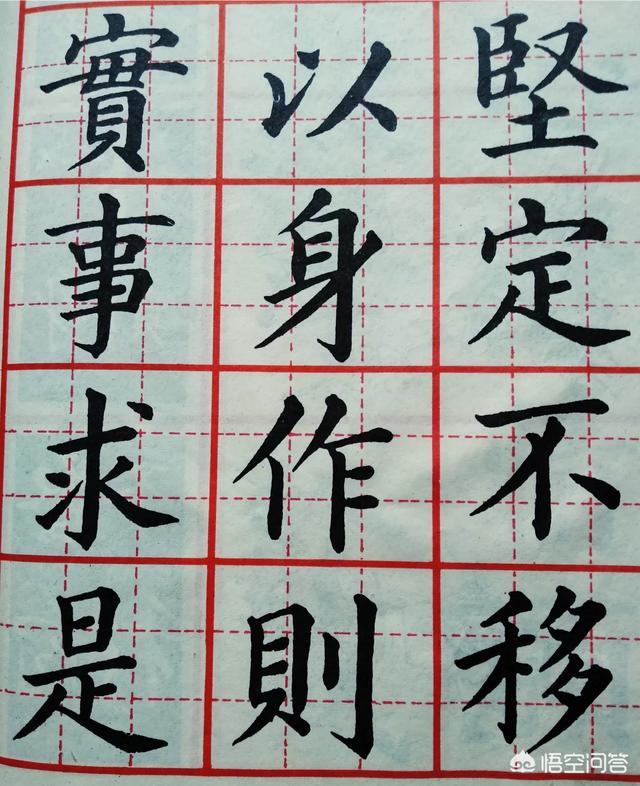 堅定不移
以身作則
實事求是
悟空问答